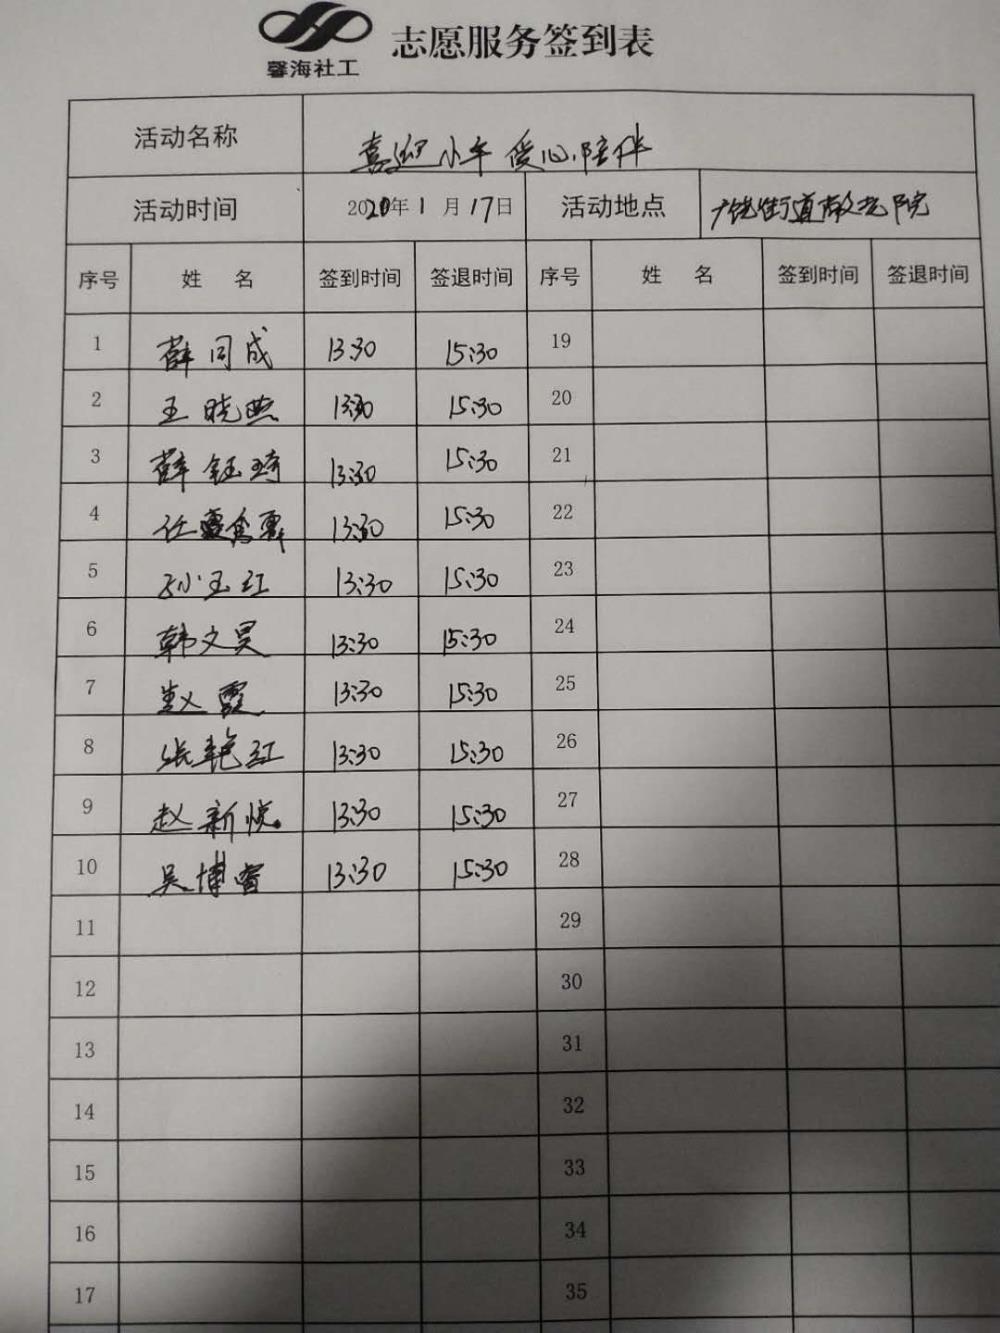 馨海社工
志愿服务签到表
活动名称 喜迎小年 爱心陪伴
活动时间 2020年1月17日 活动地点 广饶街道敬老院
序号 姓 名 签到时间 签退时间 序号 姓 名 签到时间 签退时间
1 薛同成 13:30 15:30 19
2 王晓燕 13:30 15:30 20
3 薛钰琦 13:30 15:30 21
4 任 13:30 15:30 22
5 孙玉红 13:30 15:30 23
6 韩文昊 13:30 15:30 24
7 赵霞 13:30 15:30 25
8 张艳红 13:30 15:30 26
9 赵新悦 13:30 15:30 27
10 吴博睿 13:30 15:30 28
11 29
12 30
13 31
14 32
15 33
16 34
17 35